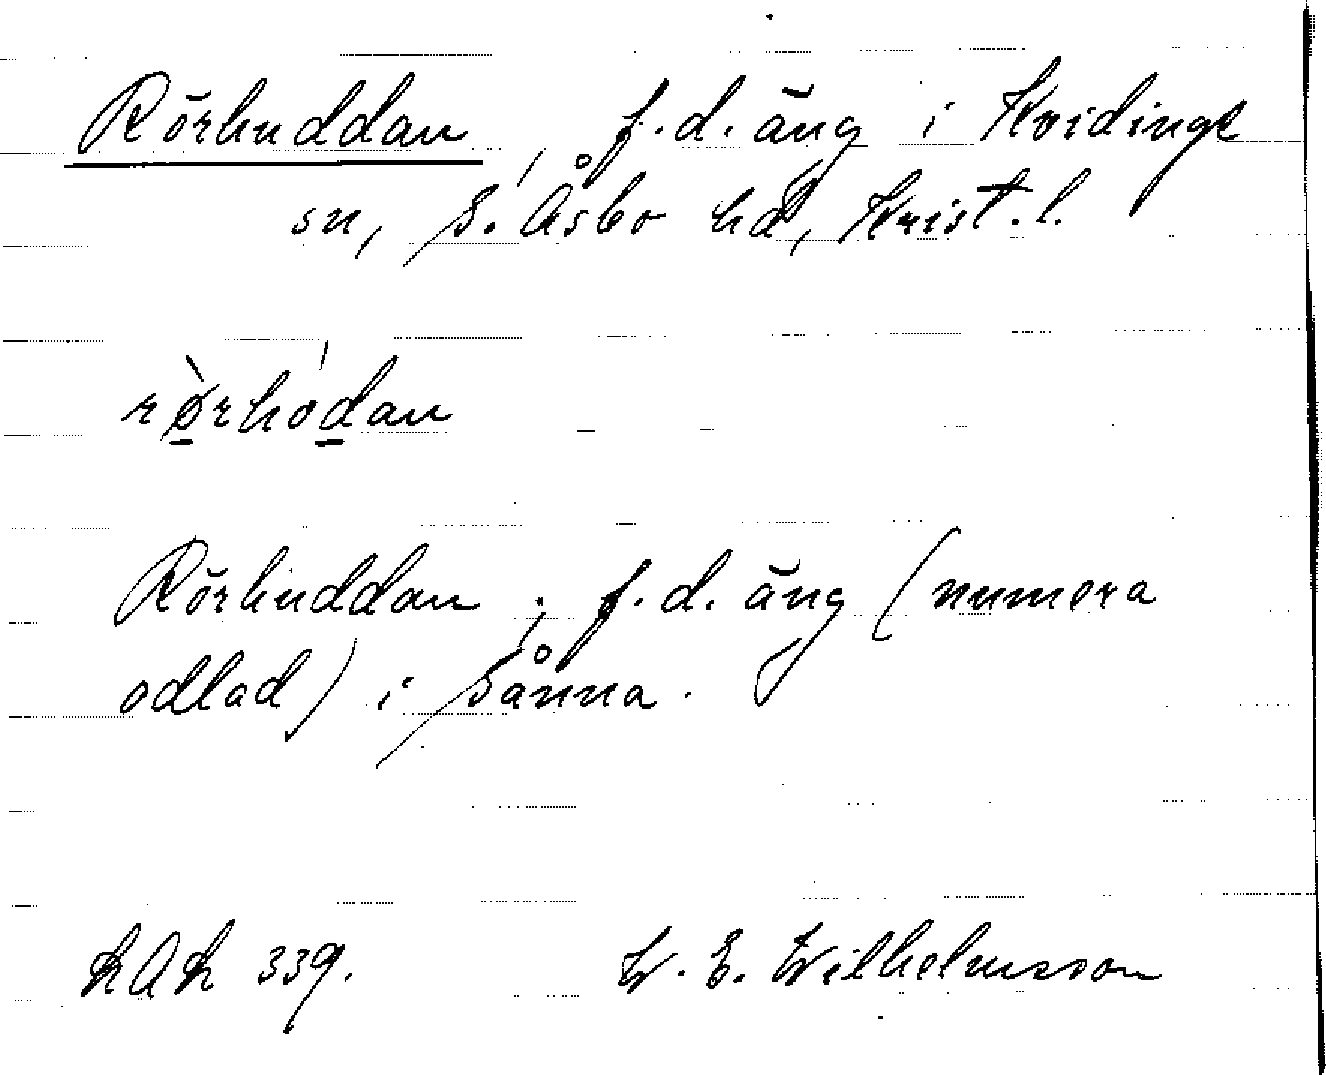 Rörhuddan, f.d. äng i Kvidinge
sn, S. Åsbo hd, Krist. l.
rø̀rhódan
Rörhuddan, f.d. äng (numera
odlad) i Sånna.
339. W. E. Wilhelmsson